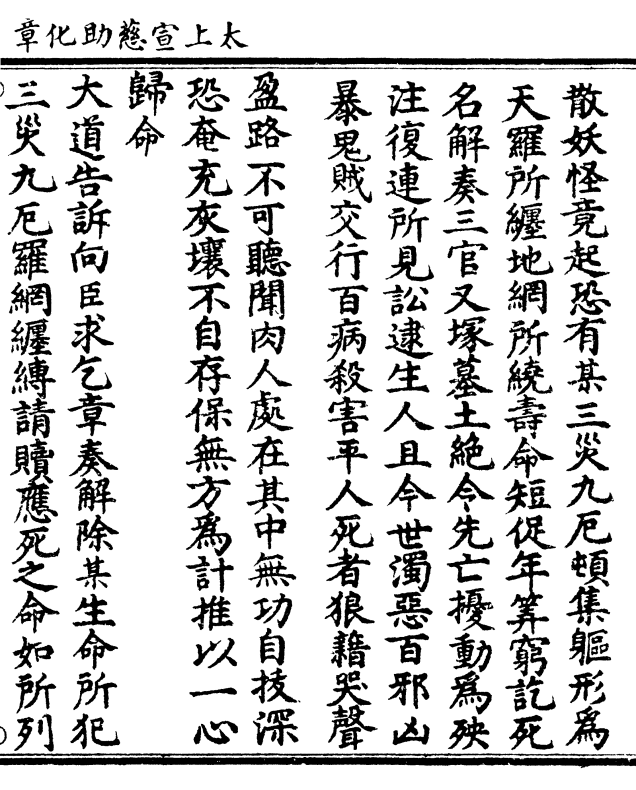 太上宣慈助化章
散妖怪竟起恐有某三災九厄頓集軀形為
天羅所纏地網所繞壽命短促年筭窮訖死
名解奏三官又塚墓土絶令先亡擾動為殃
注復連所見訟逮生人且今世濁惡百邪凶
暴鬼賊交行百病殺害平人死者狼藉哭聲
盈路不可聽聞肉人處在其中無功自技深
恐奄充灰壤不自存保無方為計推以一心
歸命
大道告訴向臣求乞章奏解除某生命所犯
三災九厄羅網纏縛請贖應死之命如所列